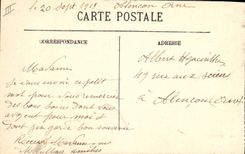 le 20 Sept 1918 Alençon Orne
CARTE POSTALE
CORRESPONDANCE
ADRESSE
Madame
Je vous envoie ce petit
mot pour vous remercier
des bons soins dont vous
avez eut pour moi et
dont je garde bon souvenir
Recevez Madame
amitiés
Albert
49 rue aux sieurs
à Alençon (Orne)